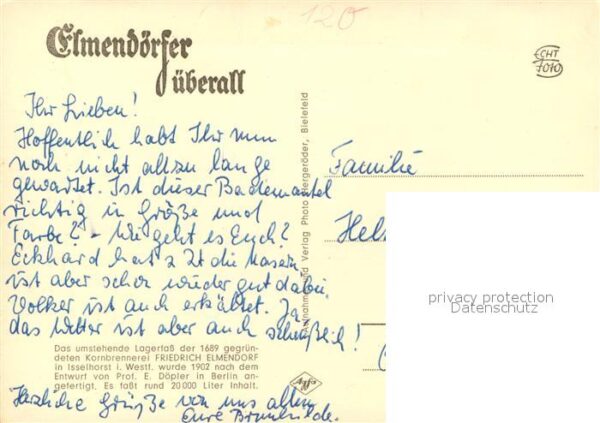 120
Elmendörfer
überall
ECHT
FOTO
Ihr Lieben!
Hoffentlich habt Ihr nun
noch nicht allzu lange
gewartet. Ist dieser Bademantel
richtig in Größe und
Farbe? - Wie geht es Euch?
Eckhard hat z Zt die Masern
ist aber schon wieder gut dabei.
Volker ist auch erkältet. Ja,
das Wetter ist aber auch scheußlich!
Das umstehende Lagerfaß der 1689 gegrün-
deten Kornbrennerei FRIEDRICH ELMENDORF
in Isselhorst i. Westf. wurde 1902 nach dem
Entwurf von Prof. E. Döpler in Berlin an-
gefertigt. Es faßt rund 20 000 Liter Inhalt.
Herzliche Grüße von uns allen
Eure Brunhilde.
Aufnahme und Verlag Photo Bergeröder, Bielefeld
Agfa
Familie
Hel
privacy protection
Datenschutz